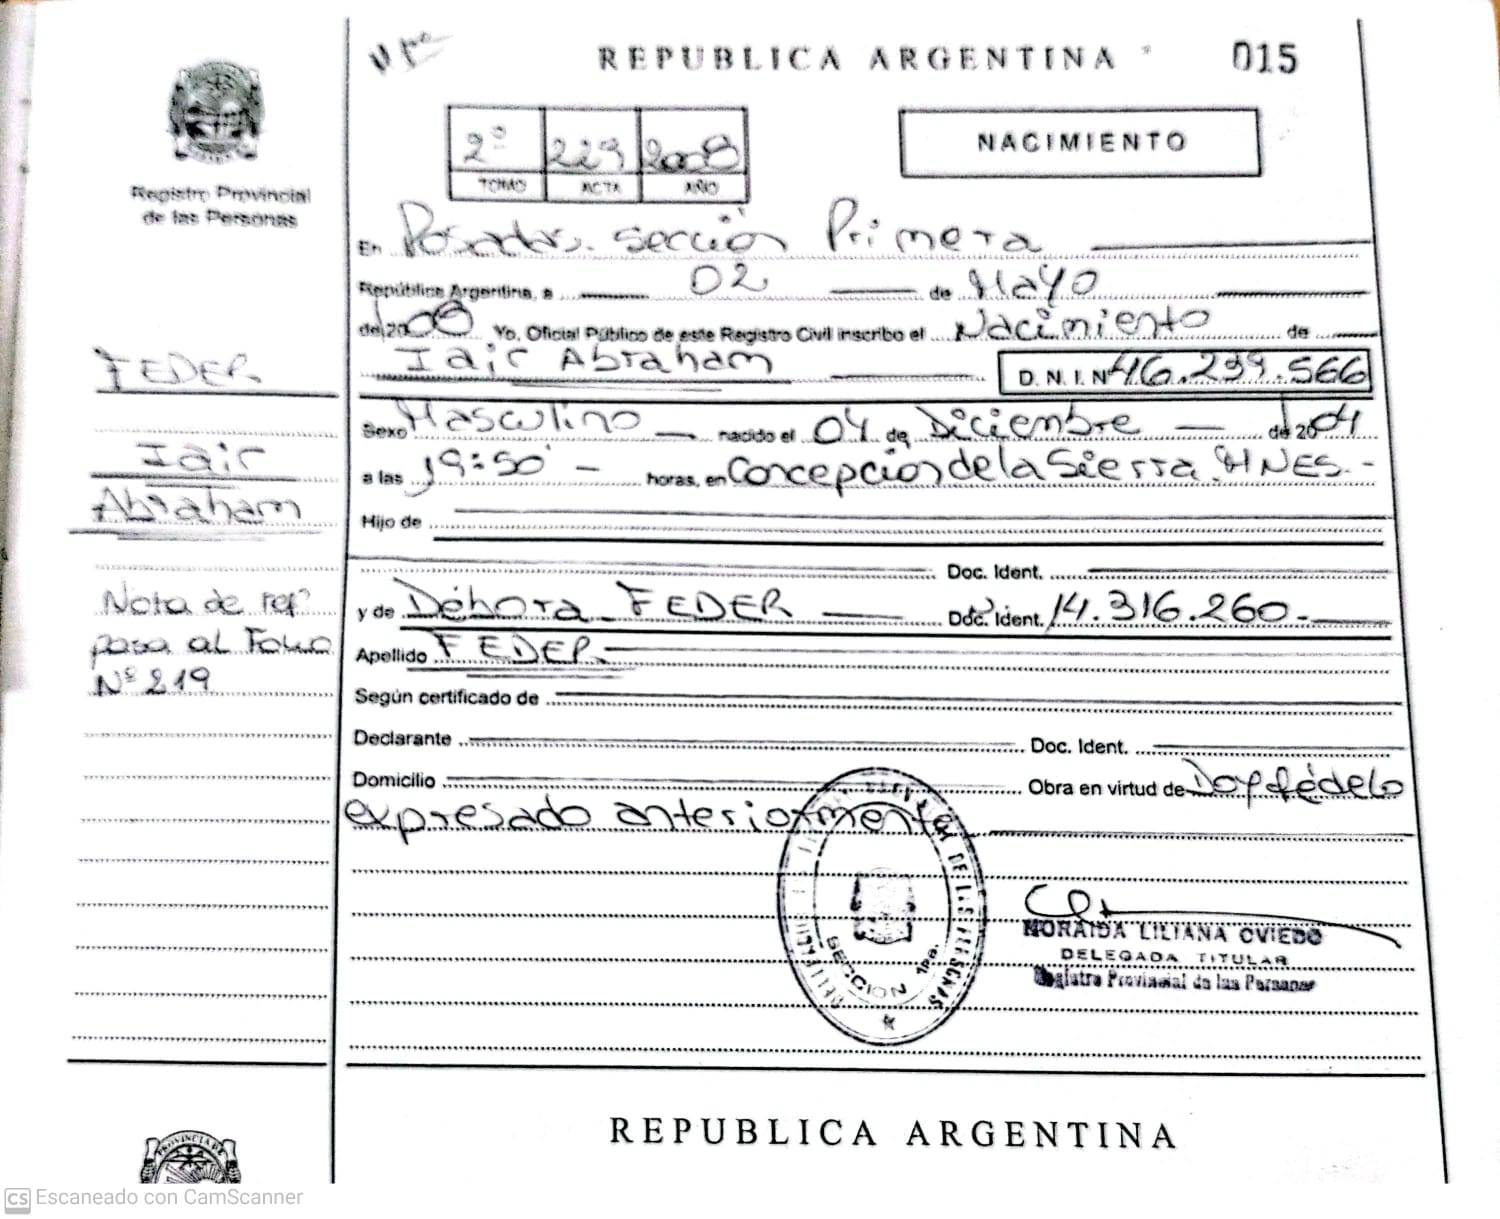 REPUBLICA ARGENTINA
015
Registro Provincial
de las Personas
2º 229 2008
TOMO ACTA AÑO
NACIMIENTO
En Posadas. sección Primera
República Argentina, a 02 de Mayo
de 2008 Yo, Oficial Público de este Registro Civil inscribo el Nacimiento de
Iair Abraham D.N.I. Nº 46.239.566
Sexo Masculino nacido el 04 de Diciembre de 2004
a las 19:50 horas, en Concepcion de la Sierra. MNES.-
Hijo de
Doc. Ident.
y de Débora FEDER Doc. Ident. 14.316.260.-
Apellido FEDER
Según certificado de
Declarante Doc. Ident.
Domicilio Obra en virtud de Doy fé de lo
expresado anteriormente
FEDER
Iair
Abraham
Nota de refª
pasa al Folio
Nº 219
DE LAS PERSONAS
SECCION 1ra.
MORAIDA LILIANA OVIEDO
DELEGADA TITULAR
Registro Provincial de las Personas
REPUBLICA ARGENTINA
PROVINCIA DE
CS Escaneado con CamScanner